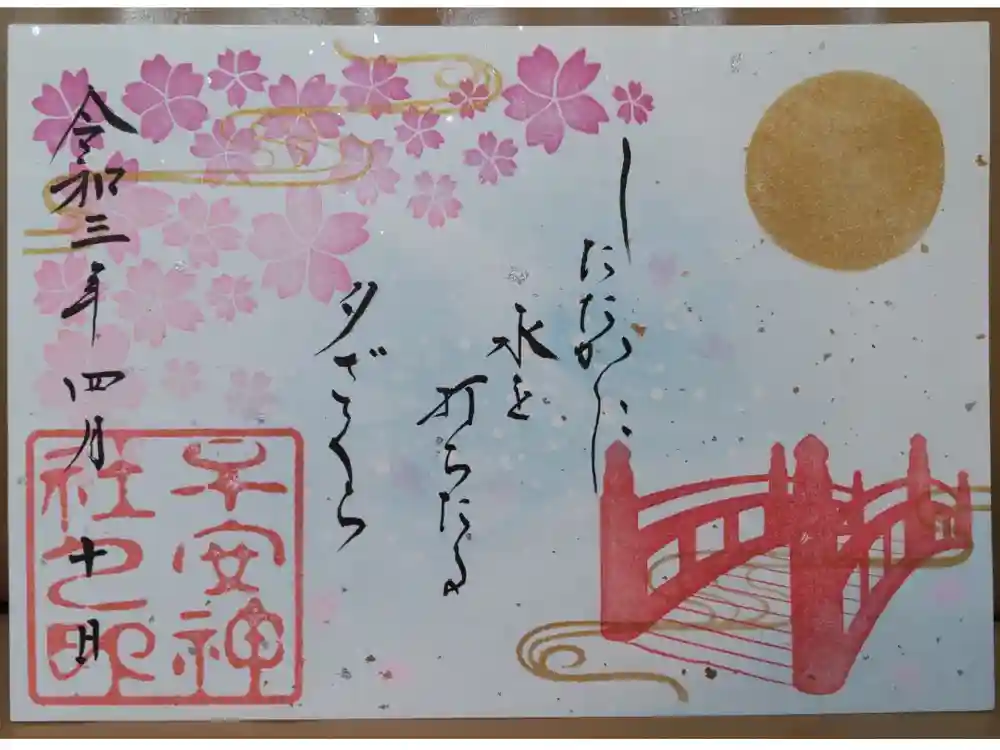 したたかに
水を
打ちたる
夕ざくら
令和三年四月十日
子安神
社之印